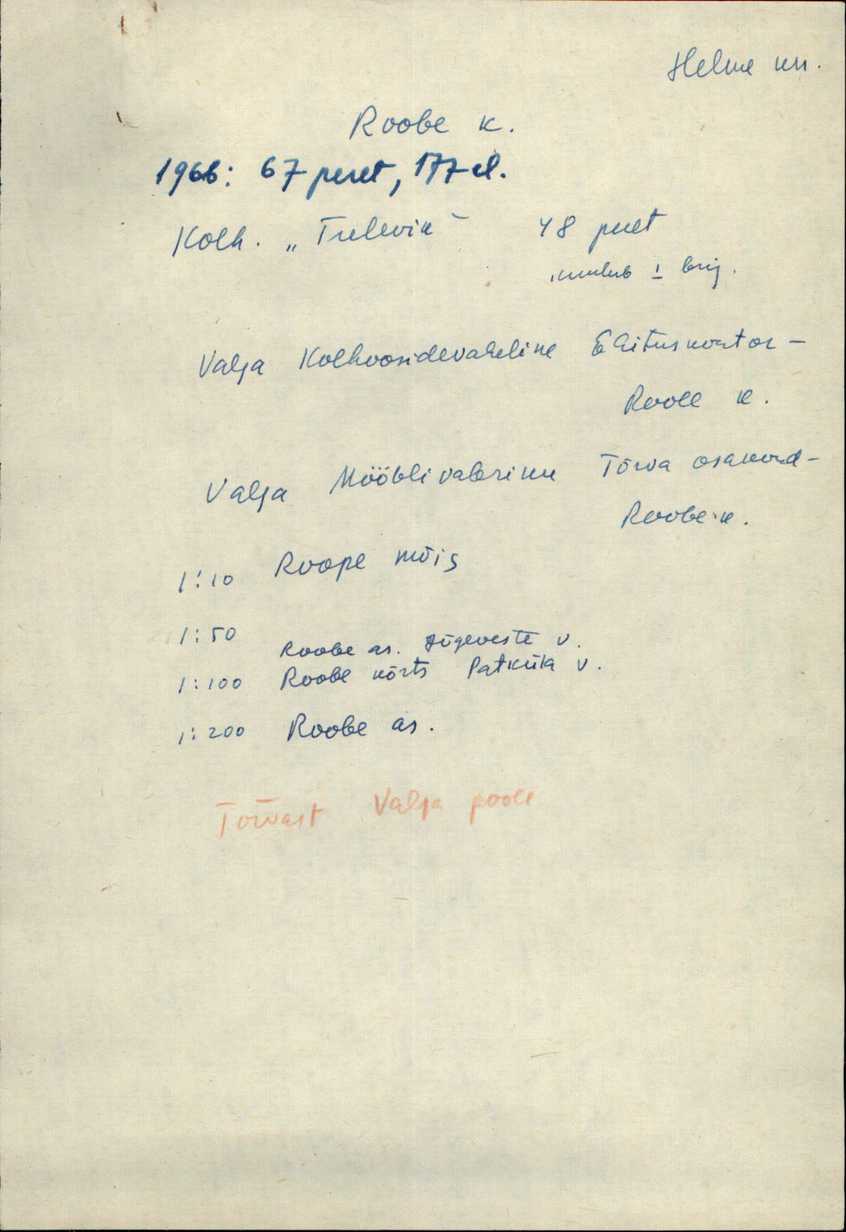 Helme khn.
Roobe k.
1966: 67 peret, 177 el.
Kolh. „Tulevik" 48 peret
kuulub I brig.
Valga Kolhoosidevaheline Ehituskontor –
Roobe k.
Valga Mööblivabriku Tõrva osakond –
Roobe k.
1:10 Roope mõis
1:50 Roobe as. Jõgeveste v.
1:100 Roobe kõrts Patküla v.
1:200 Roobe as.
Tõrvast Valga poole